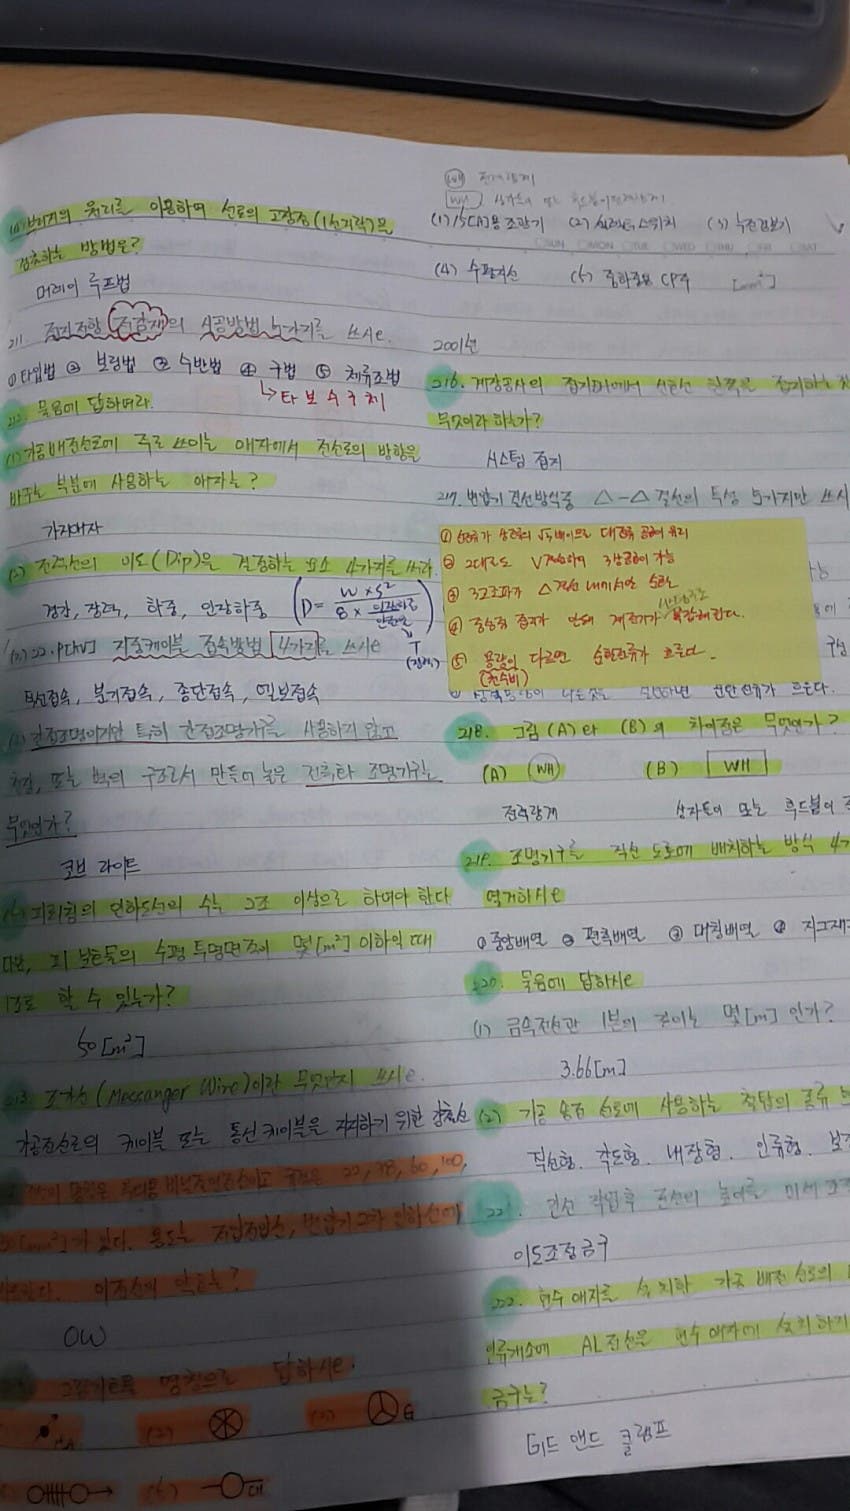 브리지의 원리를 이용하여 선로의 고장점(1선지락)을
검출하는 방법은?
머레이 루프법
211. 접지저항 저감재의 시공방법 5가지를 쓰시오.
① 타입법 ② 보링법 ③ 수반법 ④ 구법 ⑤ 체류조법
↳ 타 보 수 구 체
212. 물음에 답하여라.
(1) 가공배전선로에 주로 쓰이는 애자에서 전선로의 방향을
바꾸는 부분에 사용하는 애자는?
가지애자
(2) 전력선의 이도(Dip)을 결정하는 요소 4가지를 쓰라.
경간, 장력, 하중, 인장하중 (D = W×S² / 8× 인장하중 안전율)
T
(장력)
(3) 22.9[kV] 지중케이블 접속방법 4가지를 쓰시오
직선접속, 분기접속, 종단접속,
(4) 간접조명이지만 특히 간접조명기구를 사용하지 않고
천장, 또는 벽의 구조로서 만들어 놓은 건축화 조명기구는
무엇인가?
코브 라이트
피뢰침의 인하도선의 수는 2조 이상으로 하여야 한다
다만, 피 보호물의 수평 투영면적이 몇[m²] 이하일 때
1조로 할 수 있는가?
50[m²]
213. 조가선(Messanger Wire)이란 무엇인지 쓰시오.
가공전선로의 케이블 또는 통신케이블을 지지하기 위한 강철선
22, 38, 60, 100,
[mm²]가 있다. 용도는 저압가압선, 변압기 2차 인하선에
이전선의 약호는?
OW
그림기호를 명칭으로 답하시오.
(2) (3) G
(5)
WH 전력량계
WH 상자들이 또는 후드붙이 전력량계
(1) 15[A]용 조광기 (2) 셀렉터 스위치 (3) 누전경보기
SUN MON TUE WED THU FRI SAT
(4) 수평지선 (5) [mm²]
2001년
216. 계장공사의 접지
무엇이라 하는가?
시스템 접지
217. 변압기 결선방식중 △-△ 결선의 특성 5가지만 쓰시
① 선전류가 상전류의 √3배이므로 대전류 공급에 유리
② 2대로도 V결선하여 3상공급이 가능
③ 3고조파가 △결선 내에서만 순환
④ 중성점 접지가 안돼 계전기가 복잡해진다.
⑤ 용량이 다르면 순환전류가 흐른다.
(권수비)
순환전류가 흐른다.
218. 그림(A)와 (B)의 차이점은 무엇인가?
(A) WH (B) WH
전력량계 상자들이 또는 후드붙이
219. 조명기구를 직선 도로에 배치하는 방식 4가
열거하시오
① 중앙배열 ② 편측배열 ③ 대칭배열 ④ 지그재
220. 물음에 답하시오
(1) 금속전선관 1본의 길이는 몇[m]인가?
3.66[m]
(2) 가공 송전 선로에 사용하는 철탑의 종류
직선형, 각도형, 내장형, 인류형, 보강
221. 연선 작업후 전선의 높이를 미세 조
이도조정금구
222. 현수애자를 설치한 가공 배전 선로의
인류개소에 AL전선을 현수애자에 설치하기
금구는?
데드 앤드 클램프